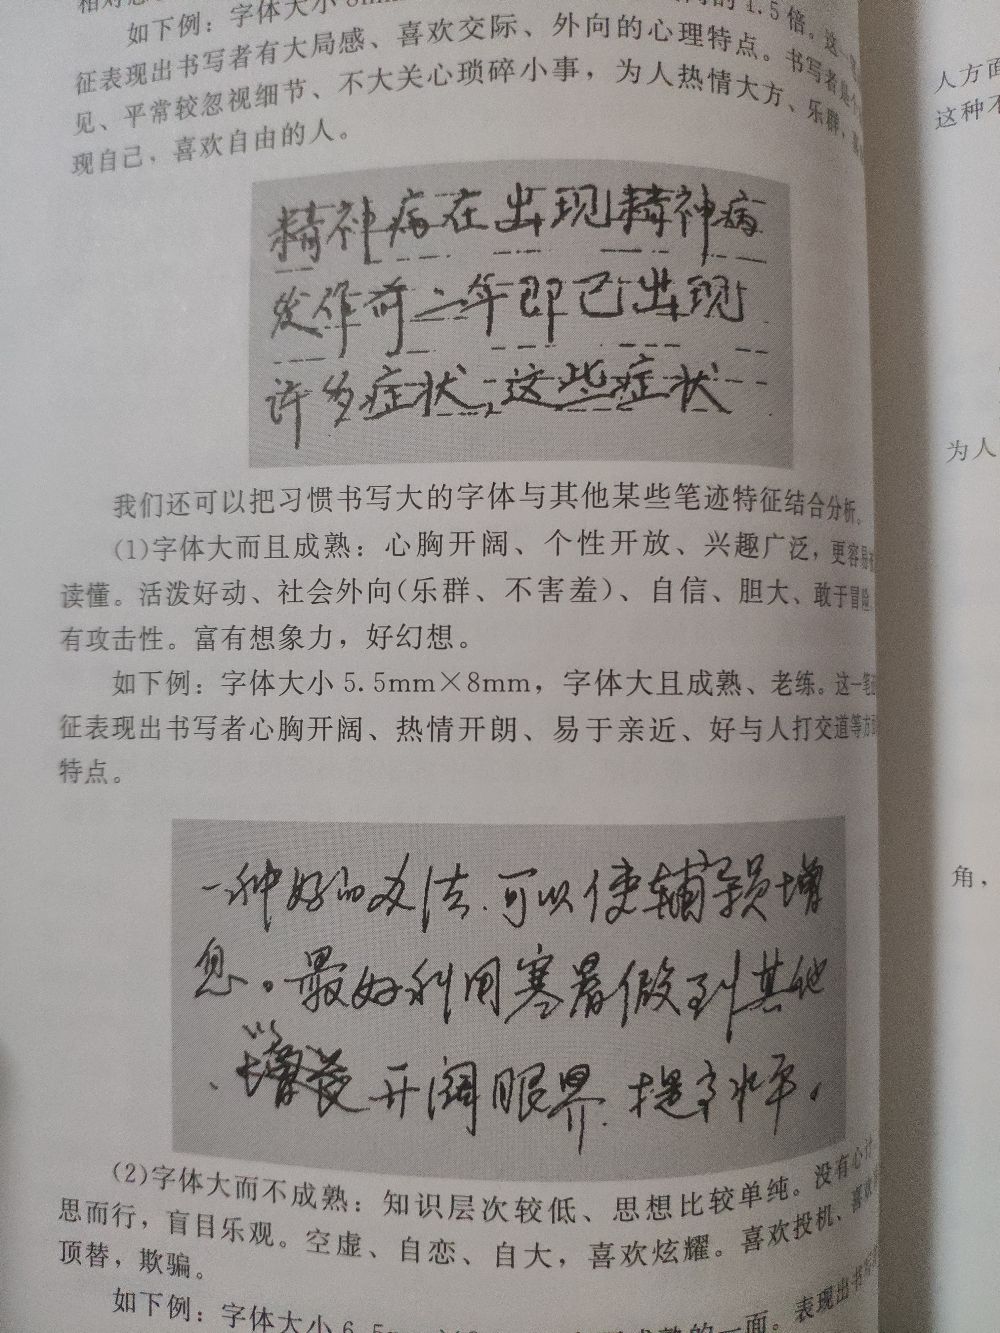 如下例：字体大小 8mm 的 1.5 倍。这一
征表现出书写者有大局感、喜欢交际、外向的心理特点。书写者是个
见、平常较忽视细节、不大关心琐碎小事，为人热情大方、乐群，
现自己，喜欢自由的人。
精神病在出现精神病
发作前一年即已出现
许多症状，这些症状
我们还可以把习惯书写大的字体与其他某些笔迹特征结合分析。
(1)字体大而且成熟：心胸开阔、个性开放、兴趣广泛，更容易
读懂。活泼好动、社会外向(乐群、不害羞)、自信、胆大、敢于冒险
有攻击性。富有想象力，好幻想。
如下例：字体大小 5.5mm×8mm，字体大且成熟、老练。这一笔
征表现出书写者心胸开阔、热情开朗、易于亲近、好与人打交道等方
特点。
一种好的办法.可以使辅导员增
息。最好利用寒暑假到其他
增长开阔眼界.提高水平.
(2)字体大而不成熟：知识层次较低、思想比较单纯。没有心计
思而行，盲目乐观。空虚、自恋、自大，喜欢炫耀。喜欢投机、喜欢
顶替，欺骗。
如下例：字体大小 6.5 的一面。表现出书
人方面
这种不
为人
角，